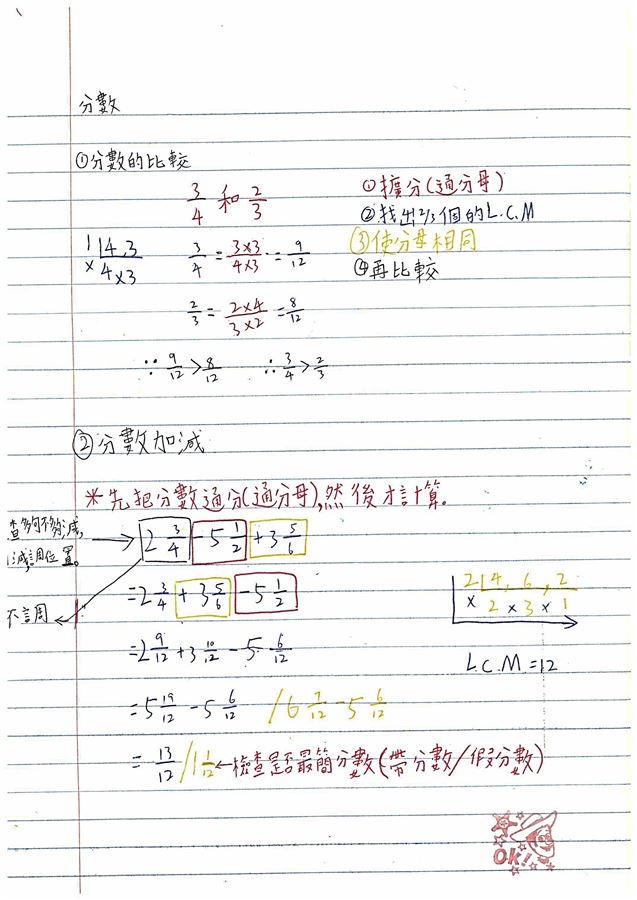 分數
①分數的比較
3/4 和 2/3
①擴分(通分母)
②找出2/3個的L.C.M
③使分母相同
④再比較
1|4,3
×4×3
3/4 = 3×3/4×3 = 9/12
2/3 = 2×4/3×2 = 8/12
∵ 9/12 > 8/12 ∴ 3/4 > 2/3
②分數加減
*先把分數通分(通分母),然後才計算.
查夠不夠減,
減調位置。
不調
2 3/4 - 5 1/2 + 3 5/6
= 2 3/4 + 3 5/6 - 5 1/2
= 2 9/12 + 3 10/12 - 5 6/12
= 5 19/12 - 5 6/12 / 6 7/12 - 5 6/12
= 13/12 / 1 1/12 ←檢查是否最簡分數(帶分數/假分數)
2|4, 6, 2
× 2 × 3 × 1
L.C.M. = 12
OK!